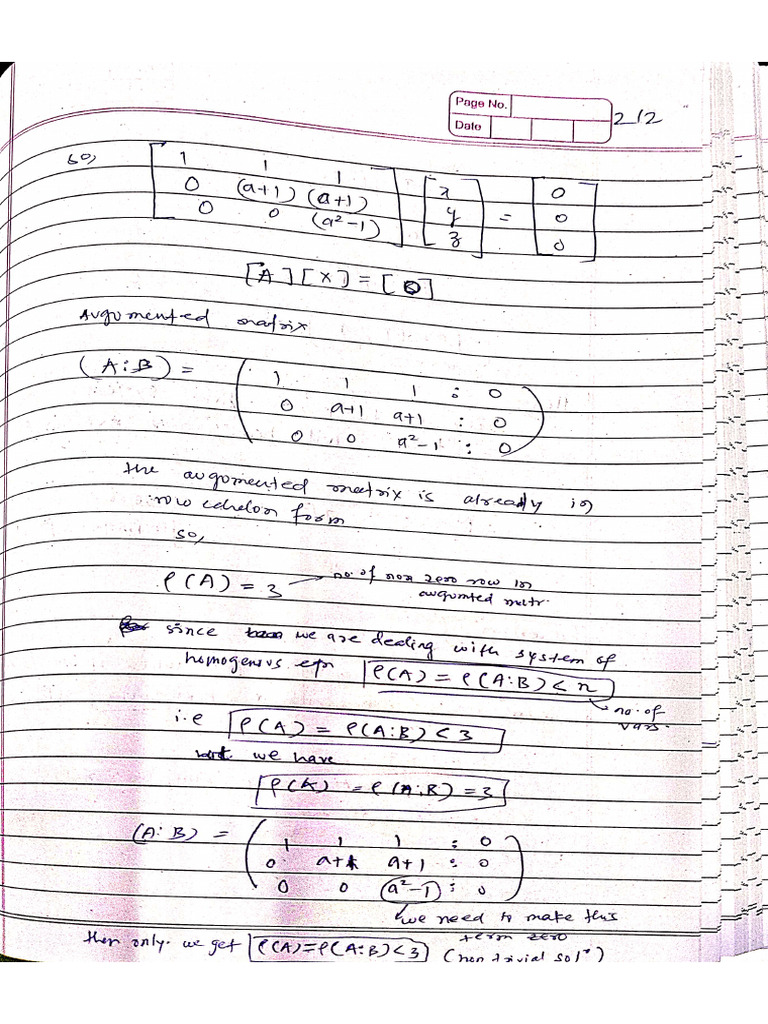 Page No.
Date
212
so, [1 1 1
0 (a+1) (a+1)
0 0 (a²-1)] [x
y
z] = [0
0
0]
[A][X] = [0]
Augomented matrix
(A:B) = (1 1 1 : 0
0 a+1 a+1 : 0
0 0 a²-1 : 0)
the augomented matrix is already in
row echelon form
so,
ρ(A) = 3 → no. of non zero row in
augumted matr.
since we are dealing with system of
homogenous eqn ρ(A) = ρ(A:B) < n
→ no. of
vars.
i.e ρ(A) = ρ(A:B) < 3
but we have
ρ(A) = ρ(A:B) = 3
(A:B) = (1 1 1 : 0
0 a+1 a+1 : 0
0 0 a²-1 : 0)
we need to make this
term zero
then only we get ρ(A)=ρ(A:B)<3 (non trivial solⁿ)